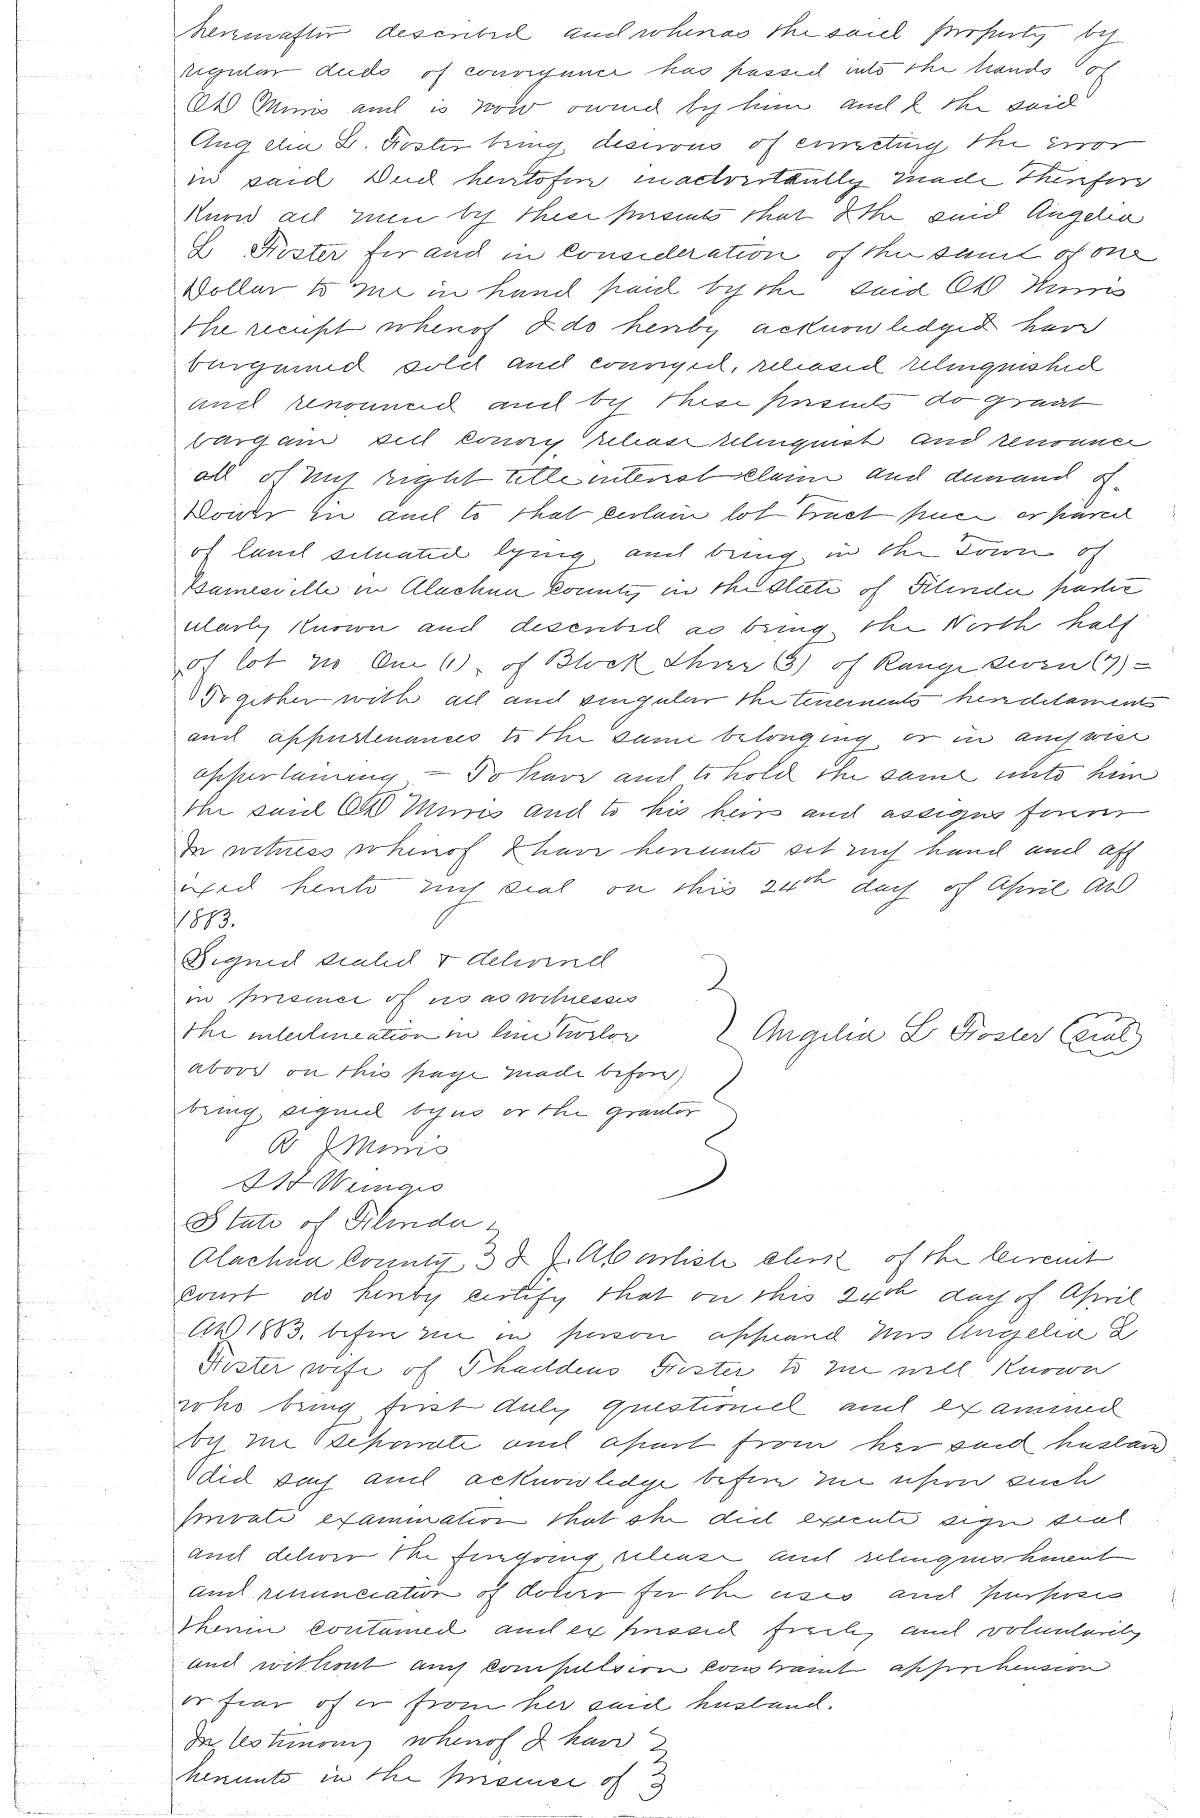 hereinafter described and whereas the said property by
regular deeds of conveyance has passed into the hands of
and is now owned by him and I the said
Angelia L. Foster being desirous of correcting the error
in said Deed heretofore inadvertantly made Therefore
Know all men by these presents that I the said Angelia
L Foster for and in consideration of the sum of one
Dollar to me in hand paid by the said
the receipt whereof I do hereby acknowledged have
bargained sold and conveyed, released relinquished
and renounced and by these presents do grant
bargain sell convey release relinquish and renounce
all of my right title interest claim and demand of
Dower in and to that certain lot tract piece or parcel
of land situated lying and being in the Town of
Gainesville in Alachua County in the State of Florida partic
ularly Known and described as being the North half
of lot no One (1) of Block Three (3) of Range seven (7) =
Together with all and singular the tenements hereditaments
and appurtenances to the same belonging or in anywise
appertaining = To have and to hold the same unto him
the said and to his heirs and assigns forever
In witness whereof I have hereunto set my hand and aff
ixed hereto my seal on this 24th day of April AD
1883.
Signed sealed & delivered
in presence of us as witnesses
the interlineation in line twelve
Angelia L Foster (seal)
above on this page made before
being signed by us or the grantor
State of Florida
Alachua County } I J. A. Carlisle clerk of the Circuit
court do hereby certify that on this 24th day of April
AD 1883. before me in person appeared Mrs Angelia L
Foster wife of Thaddeus Foster to me well Known
who being first duly questioned and examined
by me separate and apart from her said husband
did say and acknowledge before me upon such
private examination that she did execute sign seal
and deliver the foregoing release and relinquishment
and renunciation of dower for the uses and purposes
therein contained and expressed freely and voluntarily
and without any compulsion constraint apprehension
or fear of or from her said husband.
In testimony whereof I have
hereunto in the presence of